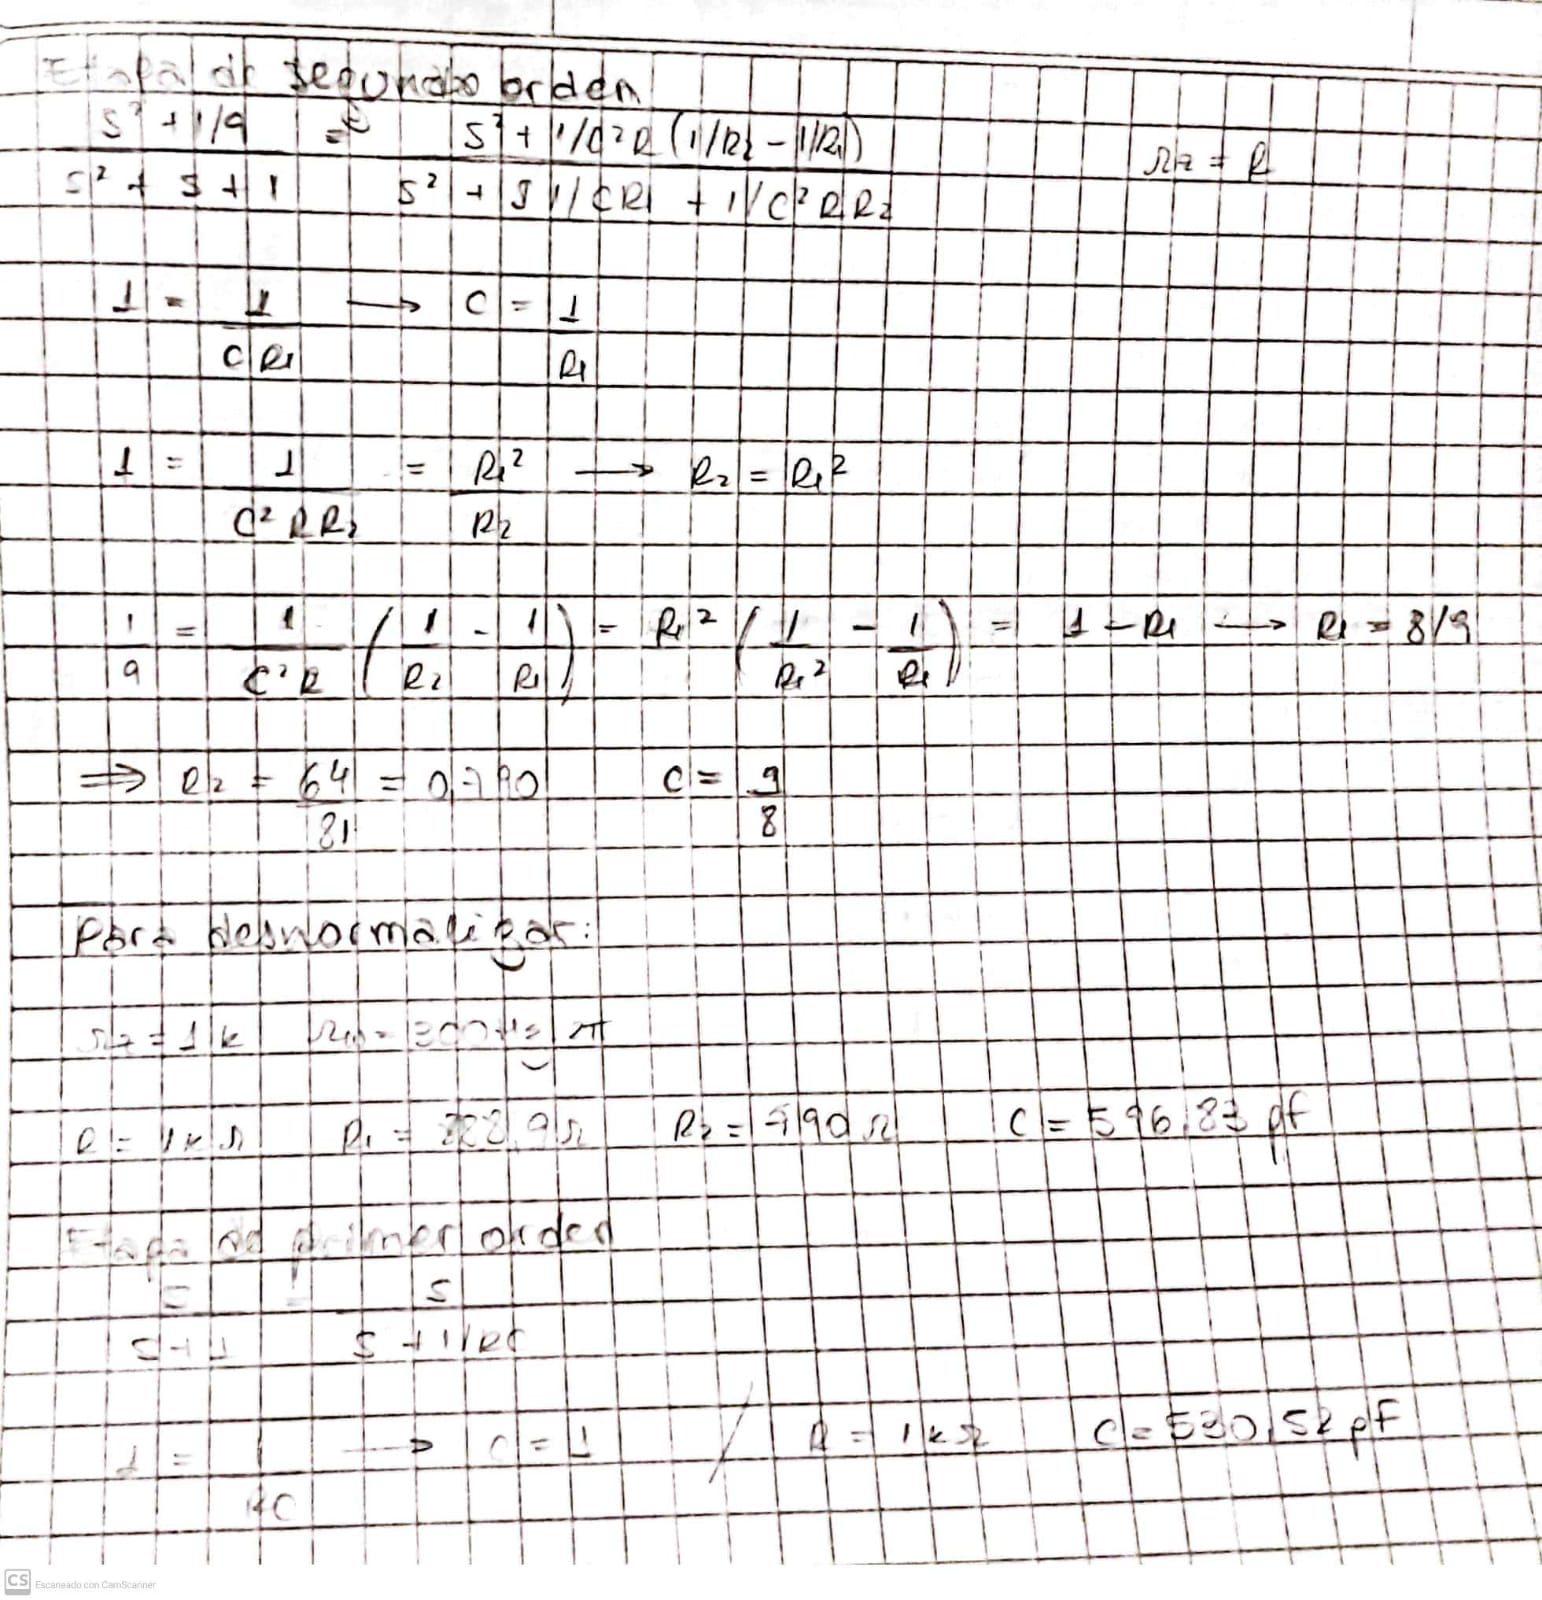 Etapa de segundo orden
S² + 1/9 = S² + 1/C²R (1/R2 - 1/R1)
S² + S + 1 S² + S 1/CR1 + 1/C²RR2
Ωz = R
1 = 1 → C = 1
CR1 R1
1 = 1 = R1² → R2 = R1²
C²RR2 R2
1 = 1 ( 1 - 1 ) = R1² ( 1 - 1 ) = 1 - R1 → R1 = 8/9
9 C²R R2 R1 R1² R1
⇒ R2 = 64 = 0,790 C = 9
81 8
Para desnormalizar:
Ωz = 1k Ωω = 300Hz π
R = 1kΩ R1 = 888,9Ω R2 = 790Ω C = 596,83 pf
Etapa de primer orden
S = S
S+1 S + 1/RC
1 = 1 → C = 1 / R = 1kΩ C = 530,52 pF
RC
CS Escaneado con CamScanner